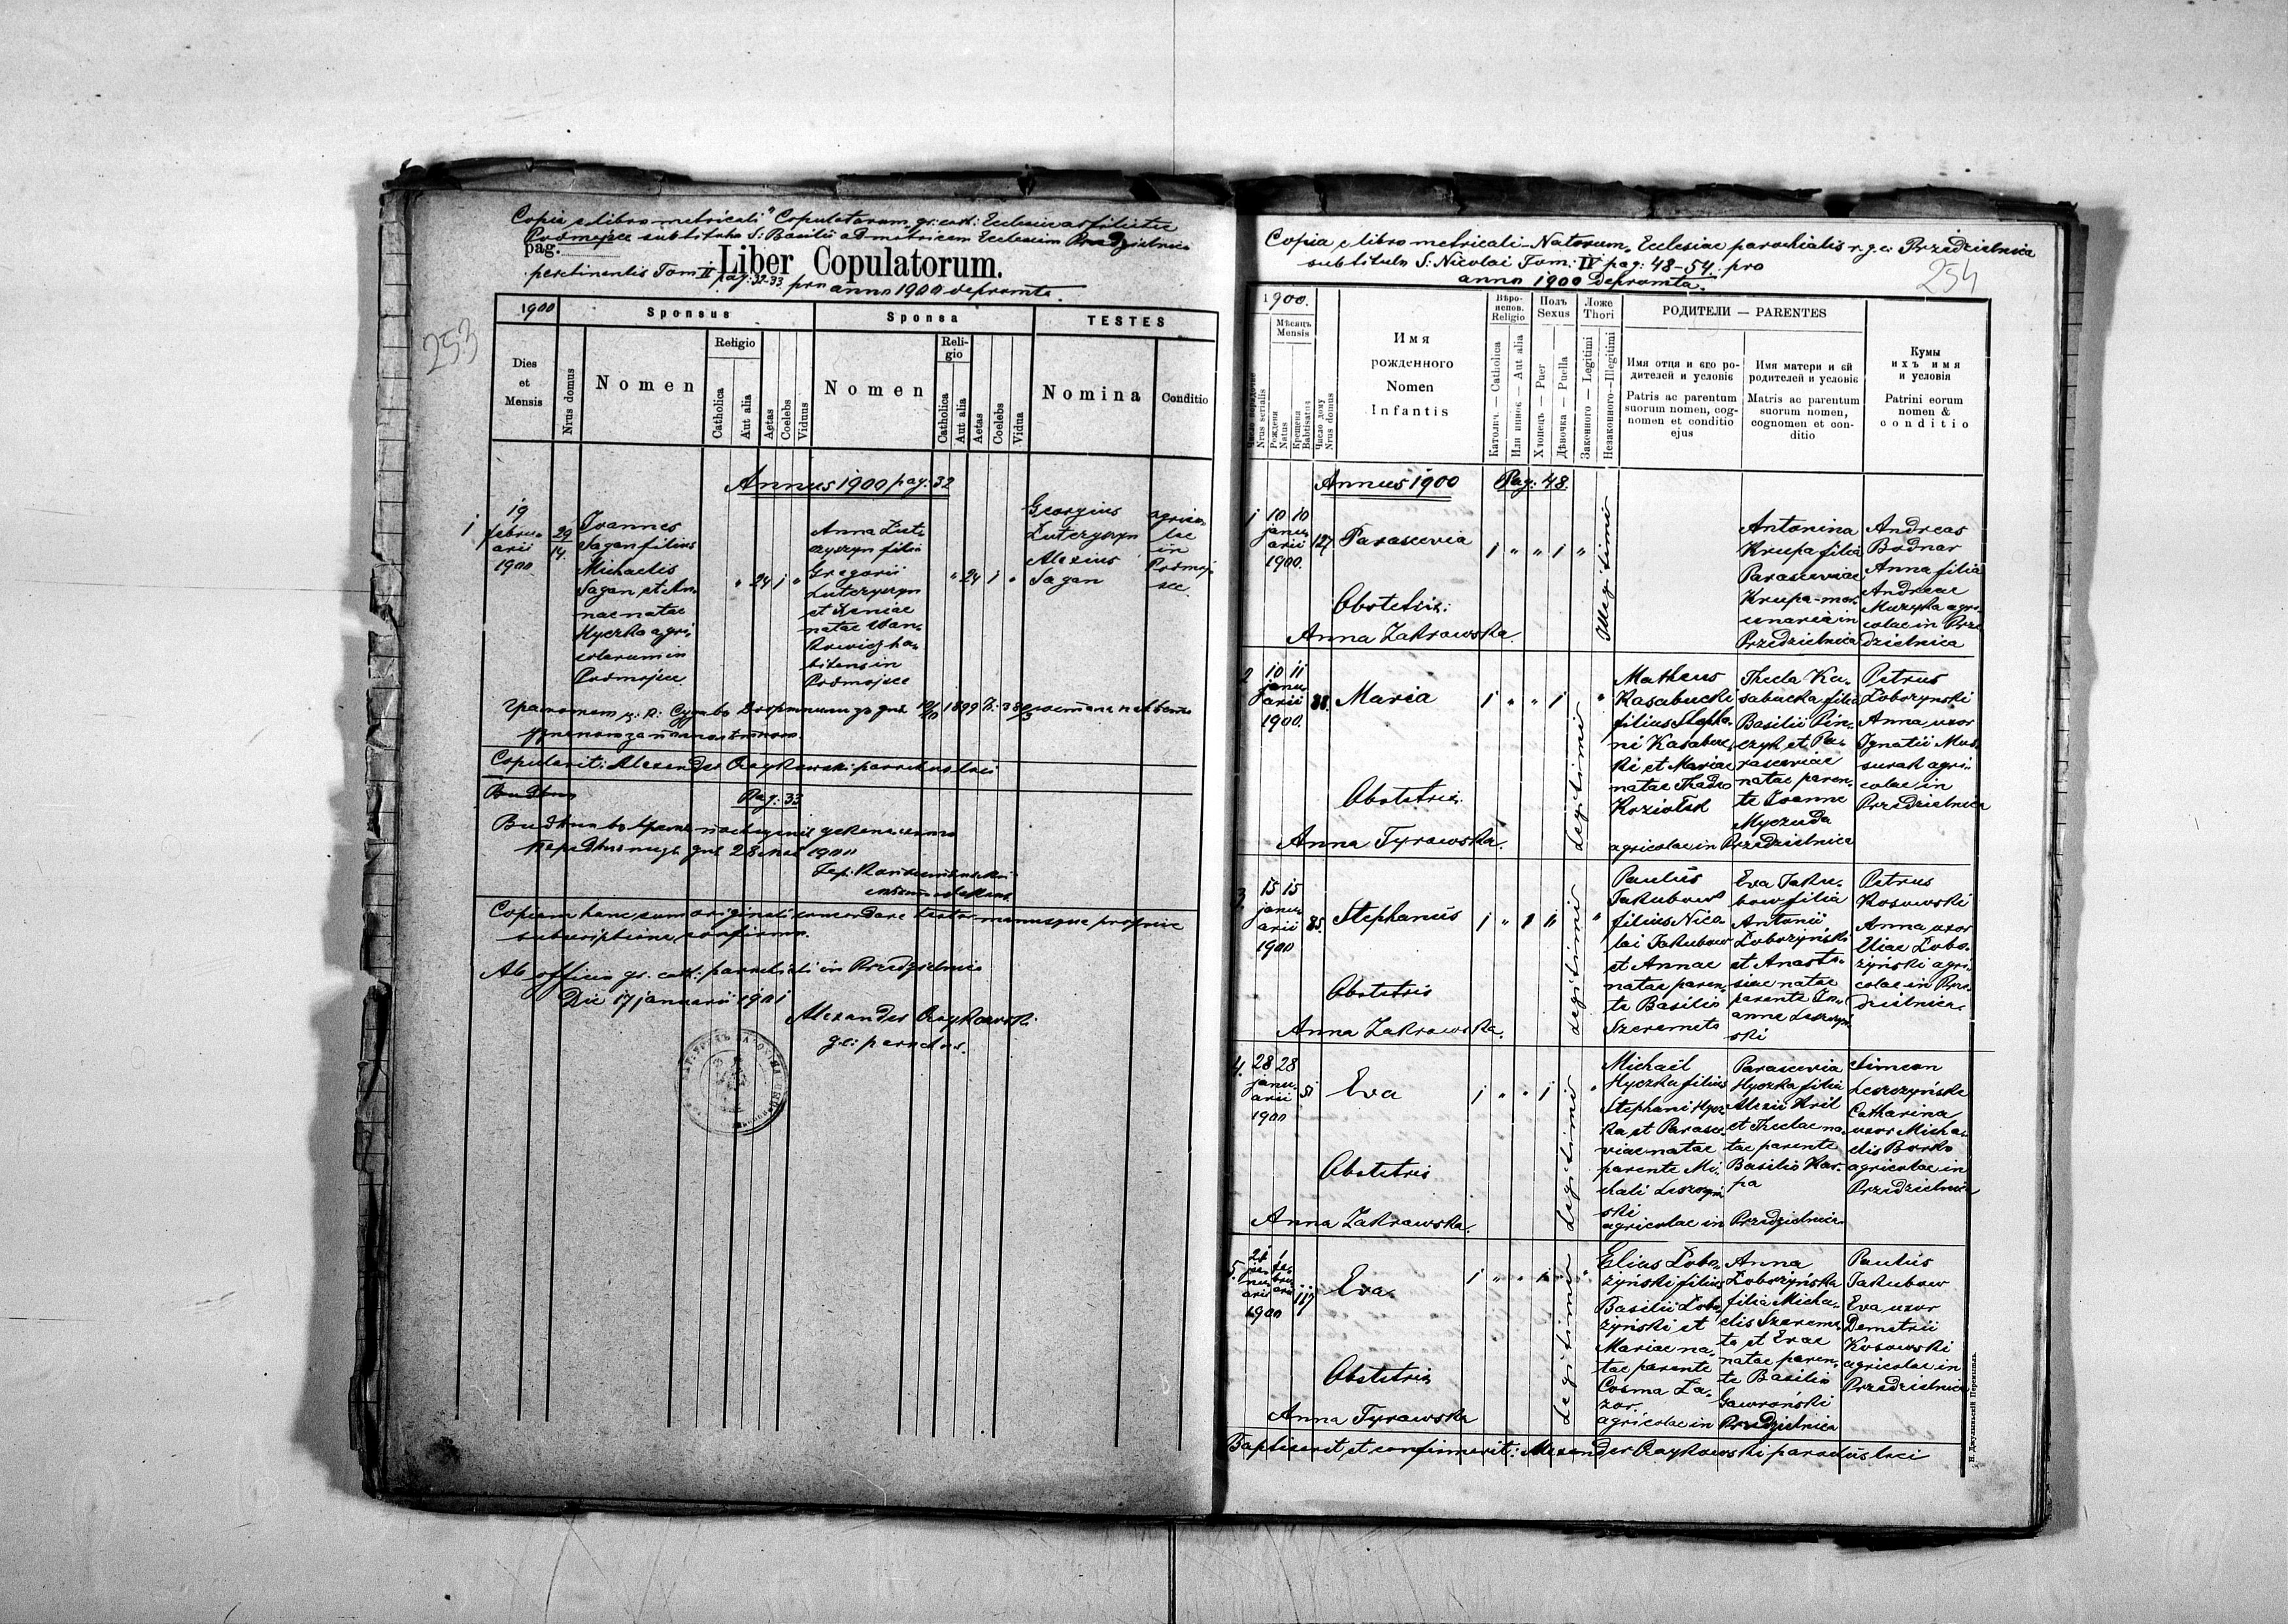 Copia e libro metricali "Copulatorum" gr: cath: Ecclesiae ad filialis
Podmojsce sub titulo S: Basilii ad matricem Ecclesiam Przedzielnica
pag.
Liber Copulatorum.
pertinentis Tom II pag: 32-33 pro anno 1900 depromta.
253
1900
Sponsus
Sponsa
TESTES
Dies
et
Mensis
Nrus domus
Nomen
Religio
Catholica
Aut alia
Aetas
Coelebs
Viduus
Nomen
Reli-
gio
Catholica
Aut alia
Aetas
Coelebs
Vidua
Nomina
Conditio
Annus 1900 pag: 32
1
19
febru-
arii
1900
29
14.
Joannes
Sagan filius
Michaelis
Sagan et An-
nae natae
Hyczko agri-
colarum in
Podmojsce
" 24 1 "
Anna Lut-
czyszyn filia
Gregorii
Lutczyszyn
et Xeniae
natae Wan-
kowicz ha-
bitans in
Podmojsce
" 24 1 "
Georgius
Lutczyszyn
Alexius
Sagan
agrico-
lae
in
Podmoj-
sce.
Copulavit: Alexander Czajkowski parochus loci
Pag: 33
28 1900
Copiam hanc cum originali concordare testor manuque propria
subscriptione confirmo.
Ab officio gr. cath: parochiali in Przedzielnica
Die 17 januarii 1901
Alexander Czajkowski
g.c: parochus.
Copia e libro metricali "Natorum" Ecclesiae parochialis r. g. c: Przedzielnica
sub titulo S: Nicolai Tom: II pag: 48-54. pro
anno 1900 depromta.
254
1900.
Число порядкове
Nrus serialis
Мѣсяцъ
Mensis
Рожденя
Natus
Крещеня
Babtisatus
Число дому
Nrus domus
Имя
рожденного
Nomen
Infantis
Вѣро-
испов.
Religio
Католич. — Catholica
Или инное — Aut alia
Полъ
Sexus
Хлопецъ — Puer
Дѣвочка — Puella
Ложе
Thori
Законного — Legitimi
Незаконного—Illegitimi
РОДИТЕЛИ — PARENTES
Имя отця и єго ро-
дителей и условіє
Patris ac parentum
suorum nomen, cog-
nomen et conditio
ejus
Имя матери и єй
родителей и условіє
Matris ac parentum
suorum nomen,
cognomen et con-
ditio
Кумы
ихъ имя
и условія
Patrini eorum
nomen &
conditio
Annus 1900 Pag: 48.
1
10 10
janu-
arii
1900.
127
Parascevia
Obstetrix:
Anna Zakrowska.
1 " " 1 "
Illegitimi
Antonina
Krupa filia
Parasceviae
Krupa - mer-
cenaria in
Przedzielnica
Andreas
Bodnar
Anna filia
Andreae
Muzyka agri-
colae in Prze-
dzielnica
2
10 11
janu-
arii
1900.
88.
Maria
Obstetrix.
Anna Tyrawska.
1 " " 1 "
Legitimi
Matheus
Kasabucki
filius Stepha-
ni Kasabuc-
ki et Mariae
natae Thadeo
Koziołek
Thecla Ka-
sabucka filia
Basilii Pin-
czyk et Pa-
rasceviae
natae paren-
te Joanne
Myczuda
agricolae in Przedzielnica
Petrus
Łoborzynski
Anna uxor
Ignatii Mus-
surak agri-
colae in
Przedzielnica
3.
15 15
janu-
arii
1900
85.
Stephanus
Obstetrix
Anna Zakrowska.
1 " 1 " "
Legitimi
Paulus
Jakubow
filius Nico-
lai Jakubow
et Annae
natae paren-
te Basilio
Szeremeto
Eva Jaku-
bow filia
Antonii
Łoborzyński
et Anasta-
siae natae
parente Jo-
anne Leszczyń-
ski
Petrus
Kosowski
Anna uxor
Eliae Łobo-
rzyński agri-
colae in Prze-
dzielnica.
4.
28 28
janu-
arii
1900
51
Eva
Obstetrix
Anna Zakrawska.
1 " " 1 "
Legitimi
Michael
Hyczka filius
Stephani Hycz-
ka et Parasce-
viae natae
parente Mi-
chali Leszczyń-
ski
Parascevia
Hyczka filia
Alexii Hril
et Theclae na-
tae parente
Basilio Kar-
pa
agricolae in Przedzielnica
Simeon
Leszczyński
Catharina
uxor Micha-
elis Borko
agricolae in
Przedzielnica
5.
1900
117
Eva.
Obstetrix
Anna Tyrawska
1 " " 1 "
Legitimi
Elias Łobo-
rzyński filius
Basilii Łobo-
rzyński et
Mariae na-
tae parente
Cosma Ła-
zor.
Anna
Łoborzyńska
filia Micha-
elis Szereme-
ta et Evae
natae paren-
te Basilio
Gawroński
agricolae in Przedzielnica
Paulus
Jakubow
Eva uxor
Demetrii
Kosowski
agricolae in
Przedzielnica
Baptisavit et confirmavit: Alexander Czajkowski parochus loci